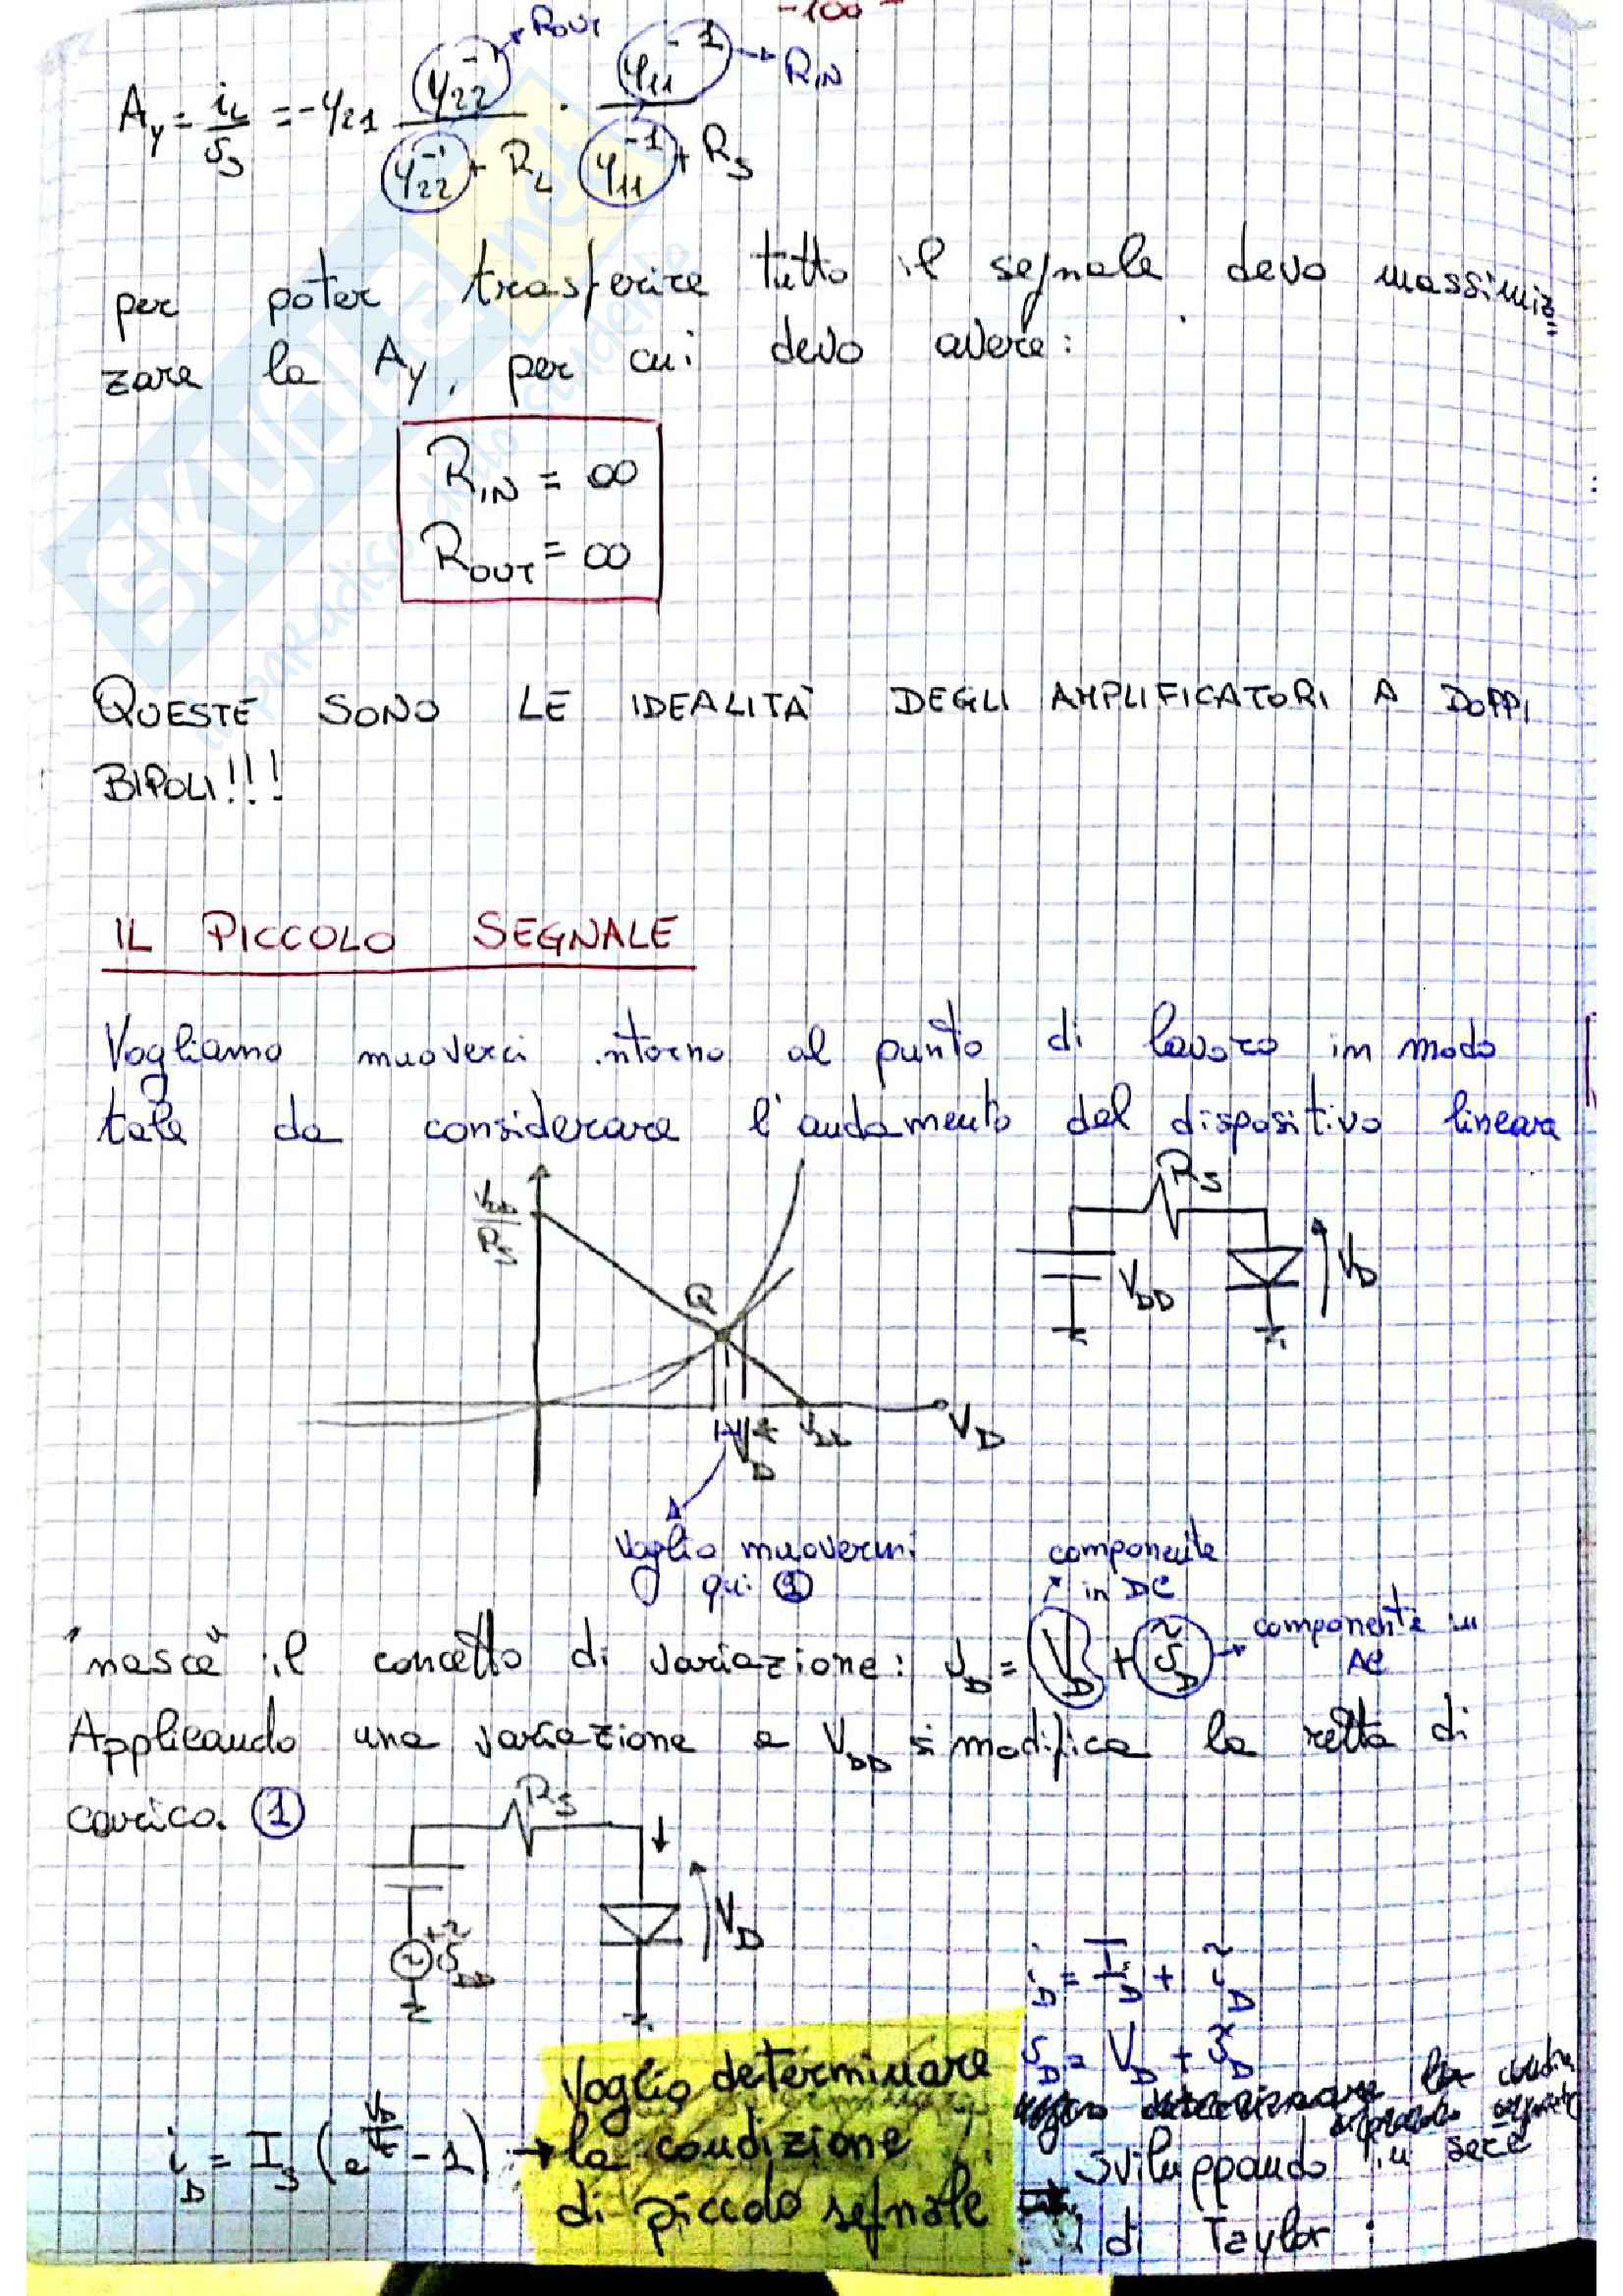 -100-
A_Y = i_L / v_S = -y21 y22^-1 / (y22^-1 + R_L) · y11^-1 / (y11^-1 + R_S)
R_OUT
R_IN
per poter trasferire tutto il segnale devo massimiz=
zare la A_Y, per cui devo avere:
R_IN = ∞
R_OUT = ∞
QUESTE SONO LE IDEALITÀ DEGLI AMPLIFICATORI A DOPPI
BIPOLI!!!
IL PICCOLO SEGNALE
Vogliamo muoverci intorno al punto di lavoro in modo
tale da considerare l'andamento del dispositivo lineare
V_DD / R_S
Q
V_D*
V_DD
V_D
R_S
V_DD
V_D
Voglio muovermi
qui ①
componente
in DC
"nasce" il concetto di variazione: v_D = V_D + ṽ_D
componente in
AC
Applicando una variazione a V_DD si modifica la retta di
carico. ①
R_S
V_D
+ ṽ_DD
i_D = I_D + ĩ_D
v_D = V_D + ṽ_D
i_D = I_S (e^(V_D/V_T) - 1) → Voglio determinare
la condizione
di piccolo segnale
Sviluppando in serie
di Taylor:
SKUOLA.net
il paradiso dello studente